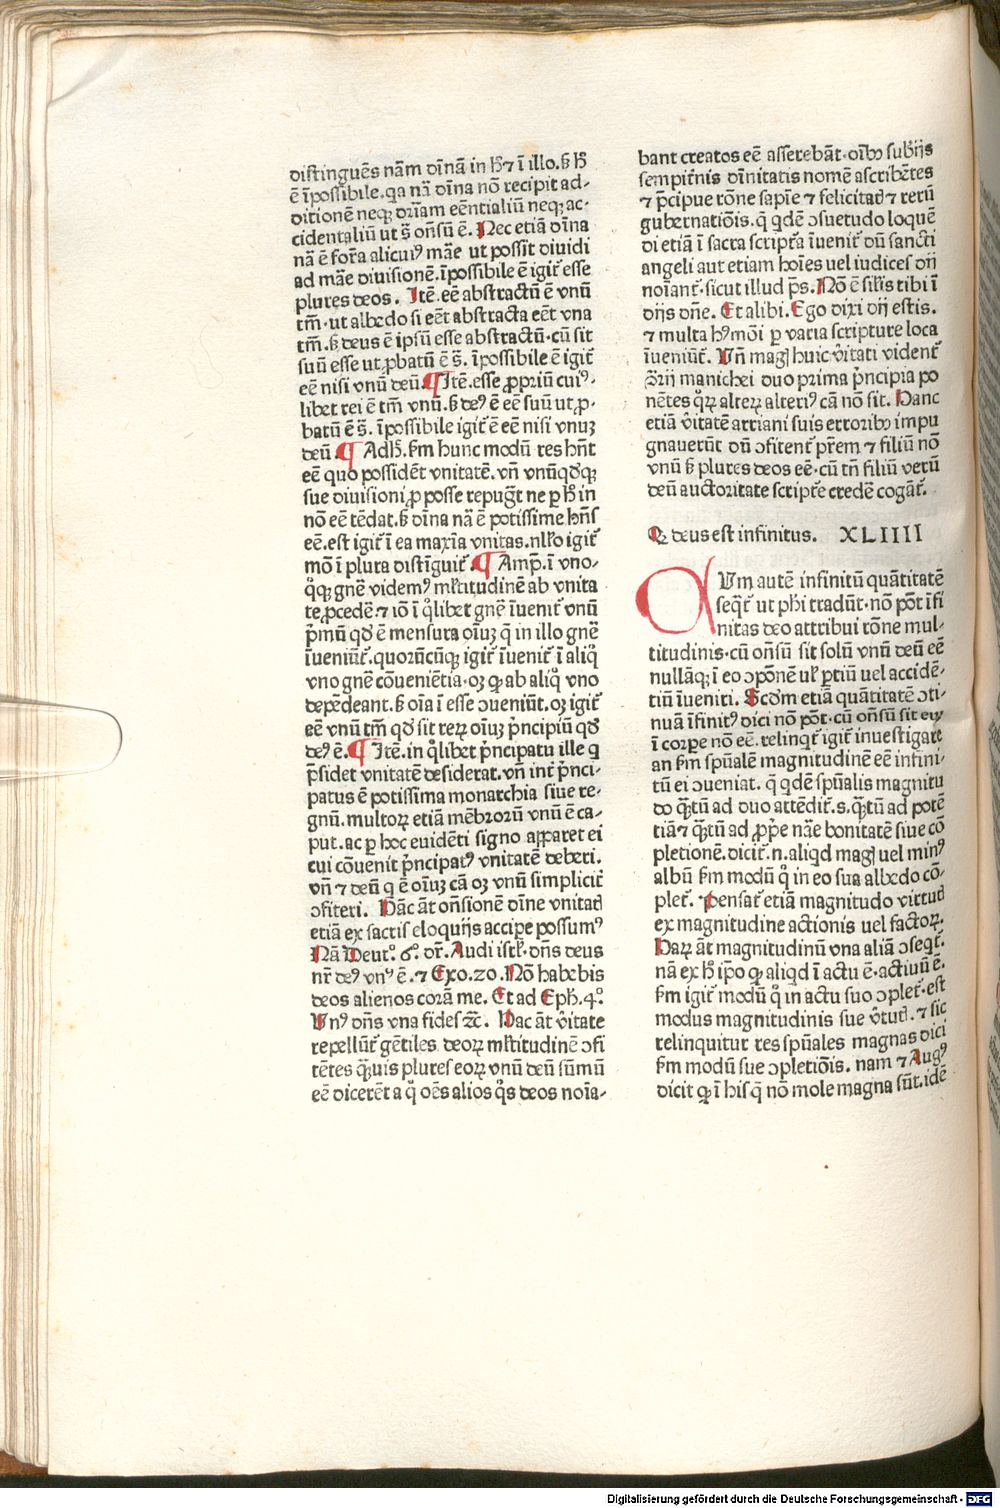 distinguēs nām dīnā in hͦ ⁊ ī illo. s̄ hͦ
ē īpossibile. qa nā dīna nō recipit ad-
ditionē neqꝫ drīam eēntialiū neqꝫ ac-
cidentaliū ut s̄ on̄sū ē. Nec etiā dīna
nā ē forā alicuiꝰ māe ut possīt diuidi
ad māe diuisionē. īpossibile ē igit̄ esse
plures deos. Itē. eē abstractū ē vnū
tm̄. ut albedo si eēt abstracta eēt vna
tm̄. s̄ deus ē ipsū esse abstractū. cū sit
suū esse ut ꝓbatū ē s̄. īpossibile ē igit̄
eē nisi vnū deū. ¶ Itē. esse ꝓpriū cuiꝰ-
libet rei ē tm̄ vnū. s̄ deꝰ ē eē suū ut ꝓ-
batū ē s̄. īpossibile igit̄ ē eē nisi vnuꝫ
deū. ¶ Adhͦ. s̄m hunc modū res hn̄t
eē quo possidēt vnitatē. vn̄ vnūqdqꝫ
sue diuisioni ꝓ posse repugāt ne p hͦ in
nō eē tēdat. s̄ dīna nā ē potissime hn̄s
eē. est igit̄ ī ea maxīa vnitas. nllo igit̄
mō ī plura distīguit̄. ¶ Amp̄. ī vno-
qͦqꝫ gn̄e videmꝰ ml̄titudinē ab vnita
te ꝓcedē. ⁊ iō ī qͦlibet gn̄e īuenit̄ vnū
p̄mū qd̄ ē mensura oīuꝫ q̄ in illo gn̄e
īueniūt̄. quorūcūqꝫ igit̄ īuenit̄ ī aliqͦ
vno gn̄e cōuenīetia. oꝫ ꝙ ab aliqͦ vno
depēdeant. s̄ oīa ī esse ↄueniūt. oꝫ igit̄
eē vnū tm̄ qd̄ sit reꝝ oīuꝫ p̄ncipiū qd̄
deꝰ ē. ¶ Itē. in qͦlibet p̄ncipatu ille q
p̄sidet vnitatē desiderat. vn̄ int̄ p̄nci-
patus ē potissima monarchia siue re-
gnū. multoꝝ etiā mēbrorū vnū ē ca-
put. ac p hoc euidēti signo apparet ei
cui cōuenit p̄ncipatꝰ vnitatē deberi.
vn̄ ⁊ deū q ē oīuꝫ cā oꝫ vnū simplicit̄
ↄfiteri. Hāc āt on̄sionē dīne vnitatꝭ
etiā ex sacris eloquijs accipe possumꝰ
Nā Deut.ͦ 6.ͦ dr̄. Audi isrl̄. dn̄s deus
nr̄ deꝰ vnꝰ ē. ⁊ Exo. 20. Nō habebis
deos alienos corā me. Et ad Eph. 4.ͦ
Vnꝰ dn̄s vna fides ⁊c. Hac āt v̄itate
repellūt̄ gētiles deoꝝ ml̄titudinē ↄfi
tētes qͣuis plures eoꝝ vnū deū sūmū
eē dicerēt a qͦ oēs alios qͦs deos noīa-
bant creatos eē asserebāt. oībꝰ sub̄ijs
sempit̄nis dīnitatis nomē ascribētes
⁊ p̄cipue rōne sapīe ⁊ felicitatꝭ ⁊ rerū
gubernatiōis. q̄ qdē ↄsuetudo loquē
di etiā ī sacra script̄a īuenit̄ dū sancti
angeli aut etiam hoīes uel iudices dij
noīant̄. sicut illud ps̄. Nō ē sil̄is tibi ī
dijs dn̄e. Et alibi. Ego dixi dij estis.
⁊ multa hꝰmōi p varia scripture loca
īueniūt̄. Vn̄ magꝭ huic v̄itati vident̄
ↄ̄rij manichei duo prima p̄ncipia po
nētes qͦꝝ alteꝝ alteriꝰ cā nō sit. Hanc
etiā v̄itatē arriani suis erroribꝰ impu
gnauerūt dū ↄfitent̄ p̄rem ⁊ filiū nō
vnū s̄ plures deos eē. cū tn̄ filiū verū
deū auctoritate script̄e credē cogāt̄.
Q deus est infinitus. XLIIII
CUm autē infinitū quātitatē
seqt̄ ut ph̄i tradūt. nō pōt īfi
nitas deo attribui rōne mul-
titudinis. cū on̄sū sit solū vnū deū eē
nullāqꝫ ī eo ↄpōnē ul̄ ptiū uel accidē-
tiū īueniri. Scdm etiā quātitatē ↄti-
nuā īfinitꝰ dici nō pōt. cū on̄sū sit eū
ī corpe nō eē. relinqt̄ igit̄ inuestigare
an s̄m spūalē magnitudinē eē infini-
tū ei ↄueniat. q̄ qdē spūalis magnitu
do qͣtū ad duo attēdit̄. s. qͣtū ad potē
tiā ⁊ qͣtū ad ꝓpe nāe bonitatē siue cō
pletionē. dicit̄. n. aliqd magꝭ uel minꝰ
albū s̄m modū qͦ in eo sua albedo cō-
plet̄. Pensat̄ etiā magnitudo virtutꝭ
ex magnitudine actionis uel factoꝝ.
Haꝝ āt magnitudinū vna aliā ↄseqt̄.
nā ex hͦ ip̄o ꝙ aliqd ī actu ē. actiuū ē.
s̄m igit̄ modū qͦ in actu suo ↄplet̄. est
modus magnitudinis sue v̄tutꝭ. ⁊ sic
relinquitur res spūales magnas dici
s̄m modū sue ↄpletiōis. nam ⁊ Augꝰ
dicit ꝙ ī his q̄ nō mole magna sūt. idē
Digitalisierung gefördert durch die Deutsche Forschungsgemeinschaft - DFG